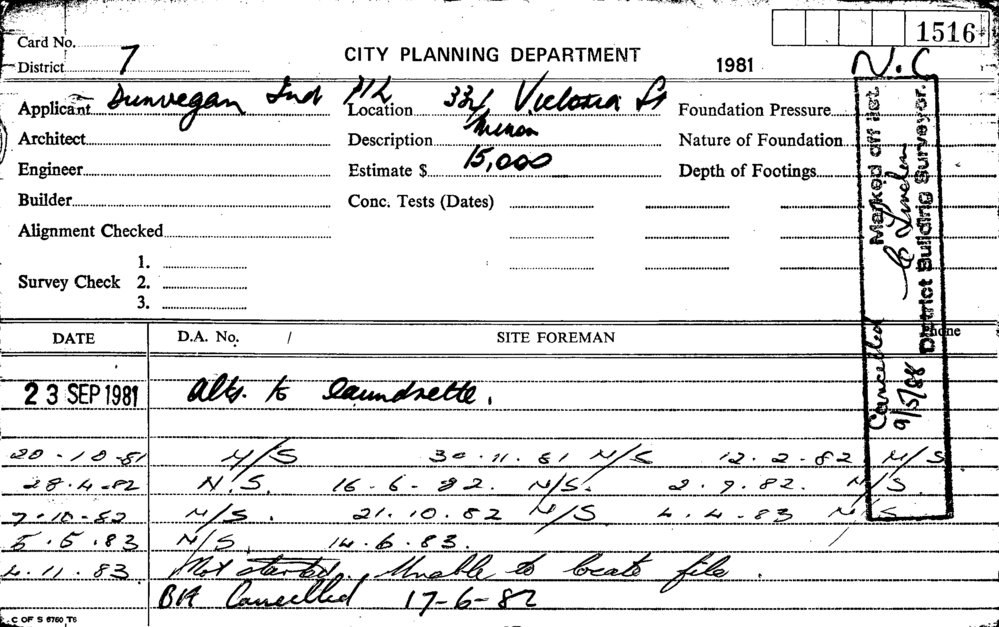 1516
Card No.
District 7
CITY PLANNING DEPARTMENT
1981
N.C
Applicant Dunvegan Ind P/L Location 334 Victoria St Foundation Pressure
Architect Description Minor Nature of Foundation
Engineer Estimate $ 15,000 Depth of Footings
Builder Conc. Tests (Dates)
Alignment Checked
Survey Check 1.
2.
3.
Cancelled Marked off list
9/5/88 District Building Surveyor.
DATE D.A. No. / SITE FOREMAN Phone
23 SEP 1981 Alts. to laundrette.
20-10-81 N/S 30.11.81 N/S 12.2.82 N/S
28.4.82 N.S. 16.6.82. N/S. 2.9.82. N/S.
7.10.82 N/S. 21.10.82 N/S 4.4.83 N/S
5.5.83 N/S, 14.6.83.
4.11.83. Not started. Unable to locate file.
BA Cancelled 17-6-82
C OF S 6760 T6